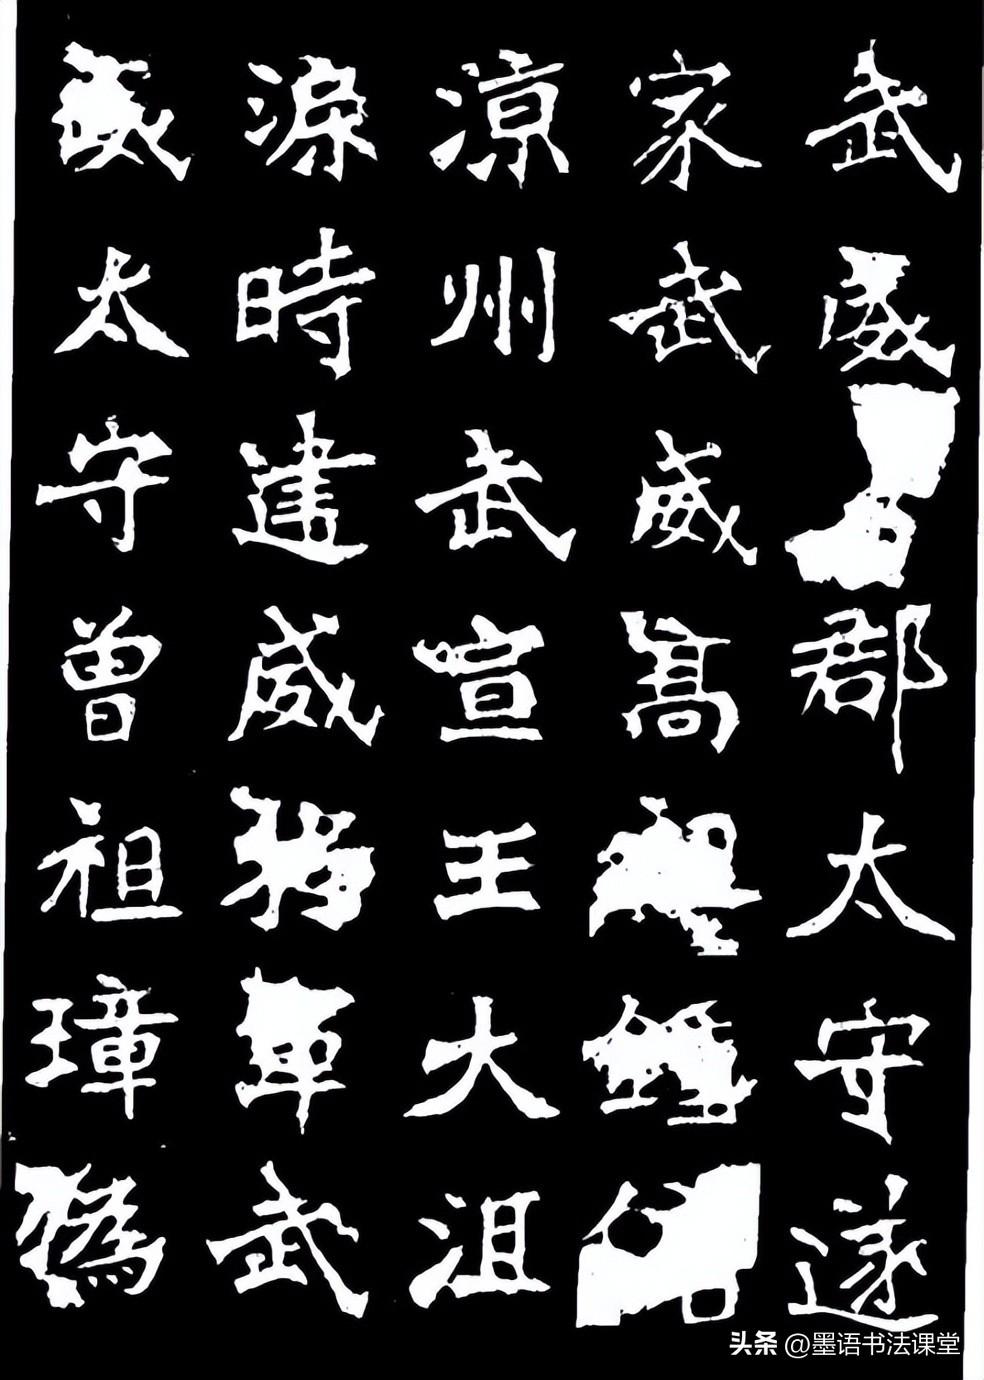 武威郡太守遂
家武威高祖鍾
涼州武宣王大沮
渠時建威將軍武
威太守曾祖璋偽
头条 @墨语书法课堂